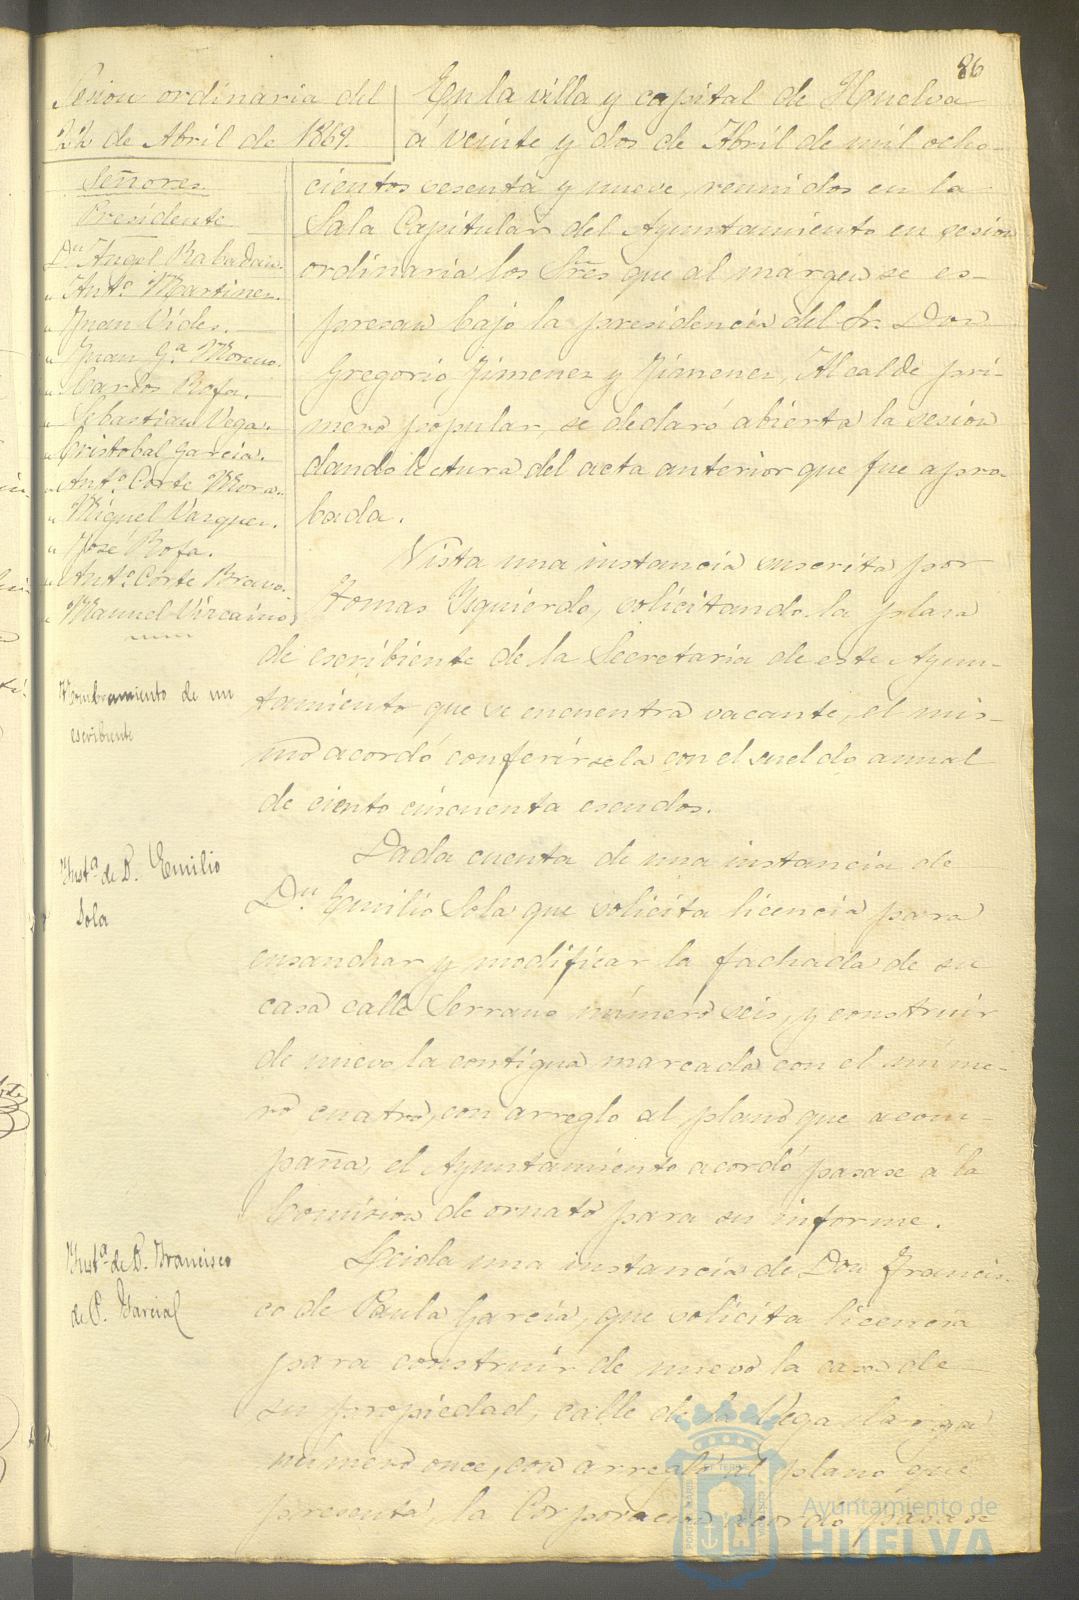 86
Sesion ordinaria del
22 de Abril de 1869.
Señores
Presidente
Dn. Angel Rabadan.
" Anto. Martinez.
" Juan Vides.
" Juan Ga. Moreno.
" Carlos Rofa.
" Sebastian Vega.
" Cristobal Garcia.
" Anto. Corte Mora.
" Miguel Vazquez.
" José Rofa.
" Anto. Corte Bravo.
" Manuel Vizcaino
En la villa y capital de Huelva
á veinte y dos de Abril de mil ocho-
cientos sesenta y nueve, reunidos en la
Sala Capitular del Ayuntamiento en sesion
ordinaria los Sres. que al márgen se es-
presan bajo la presidencia del Sr. Don
Gregorio Jimenez y Jimenez, Alcalde pri-
mero popular, se declaró abierta la sesion
dando lectura del acta anterior que fue apro-
bada.
Nombramiento de un
escribiente
Vista una instancia suscrita por
Tomas Ysquierdo, solicitando la plasa
de escribiente de la Secretaria de este Ayun-
tamiento que se encuentra vacante, el mis-
mo acordó conferirsela con el sueldo annal
de ciento cincuenta escudos.
Insta. de D. Emilio
Sola
Dada cuenta de una instancia de
Dn. Emilio Sola que solicita licencia para
ensanchar y modificar la fachada de su
casa calle Serrano número seis, y construir
de nuevo la contigua marcada con el núme-
ro cuatro, con arreglo al plano que acom-
paña, el Ayuntamiento acordó pasase á la
Comision de ornato para su informe.
Insta. de D. Francisco
de P. Garcia
Leida una instancia de Don Francis-
co de Paula Garcia, que solicita licencia
para construir de nuevo la casa de
su propiedad, calle de la Vega larga
número once, con arreglo al plano que
presenta, la Corporacion acordó pasase
Ayuntamiento de
HUELVA